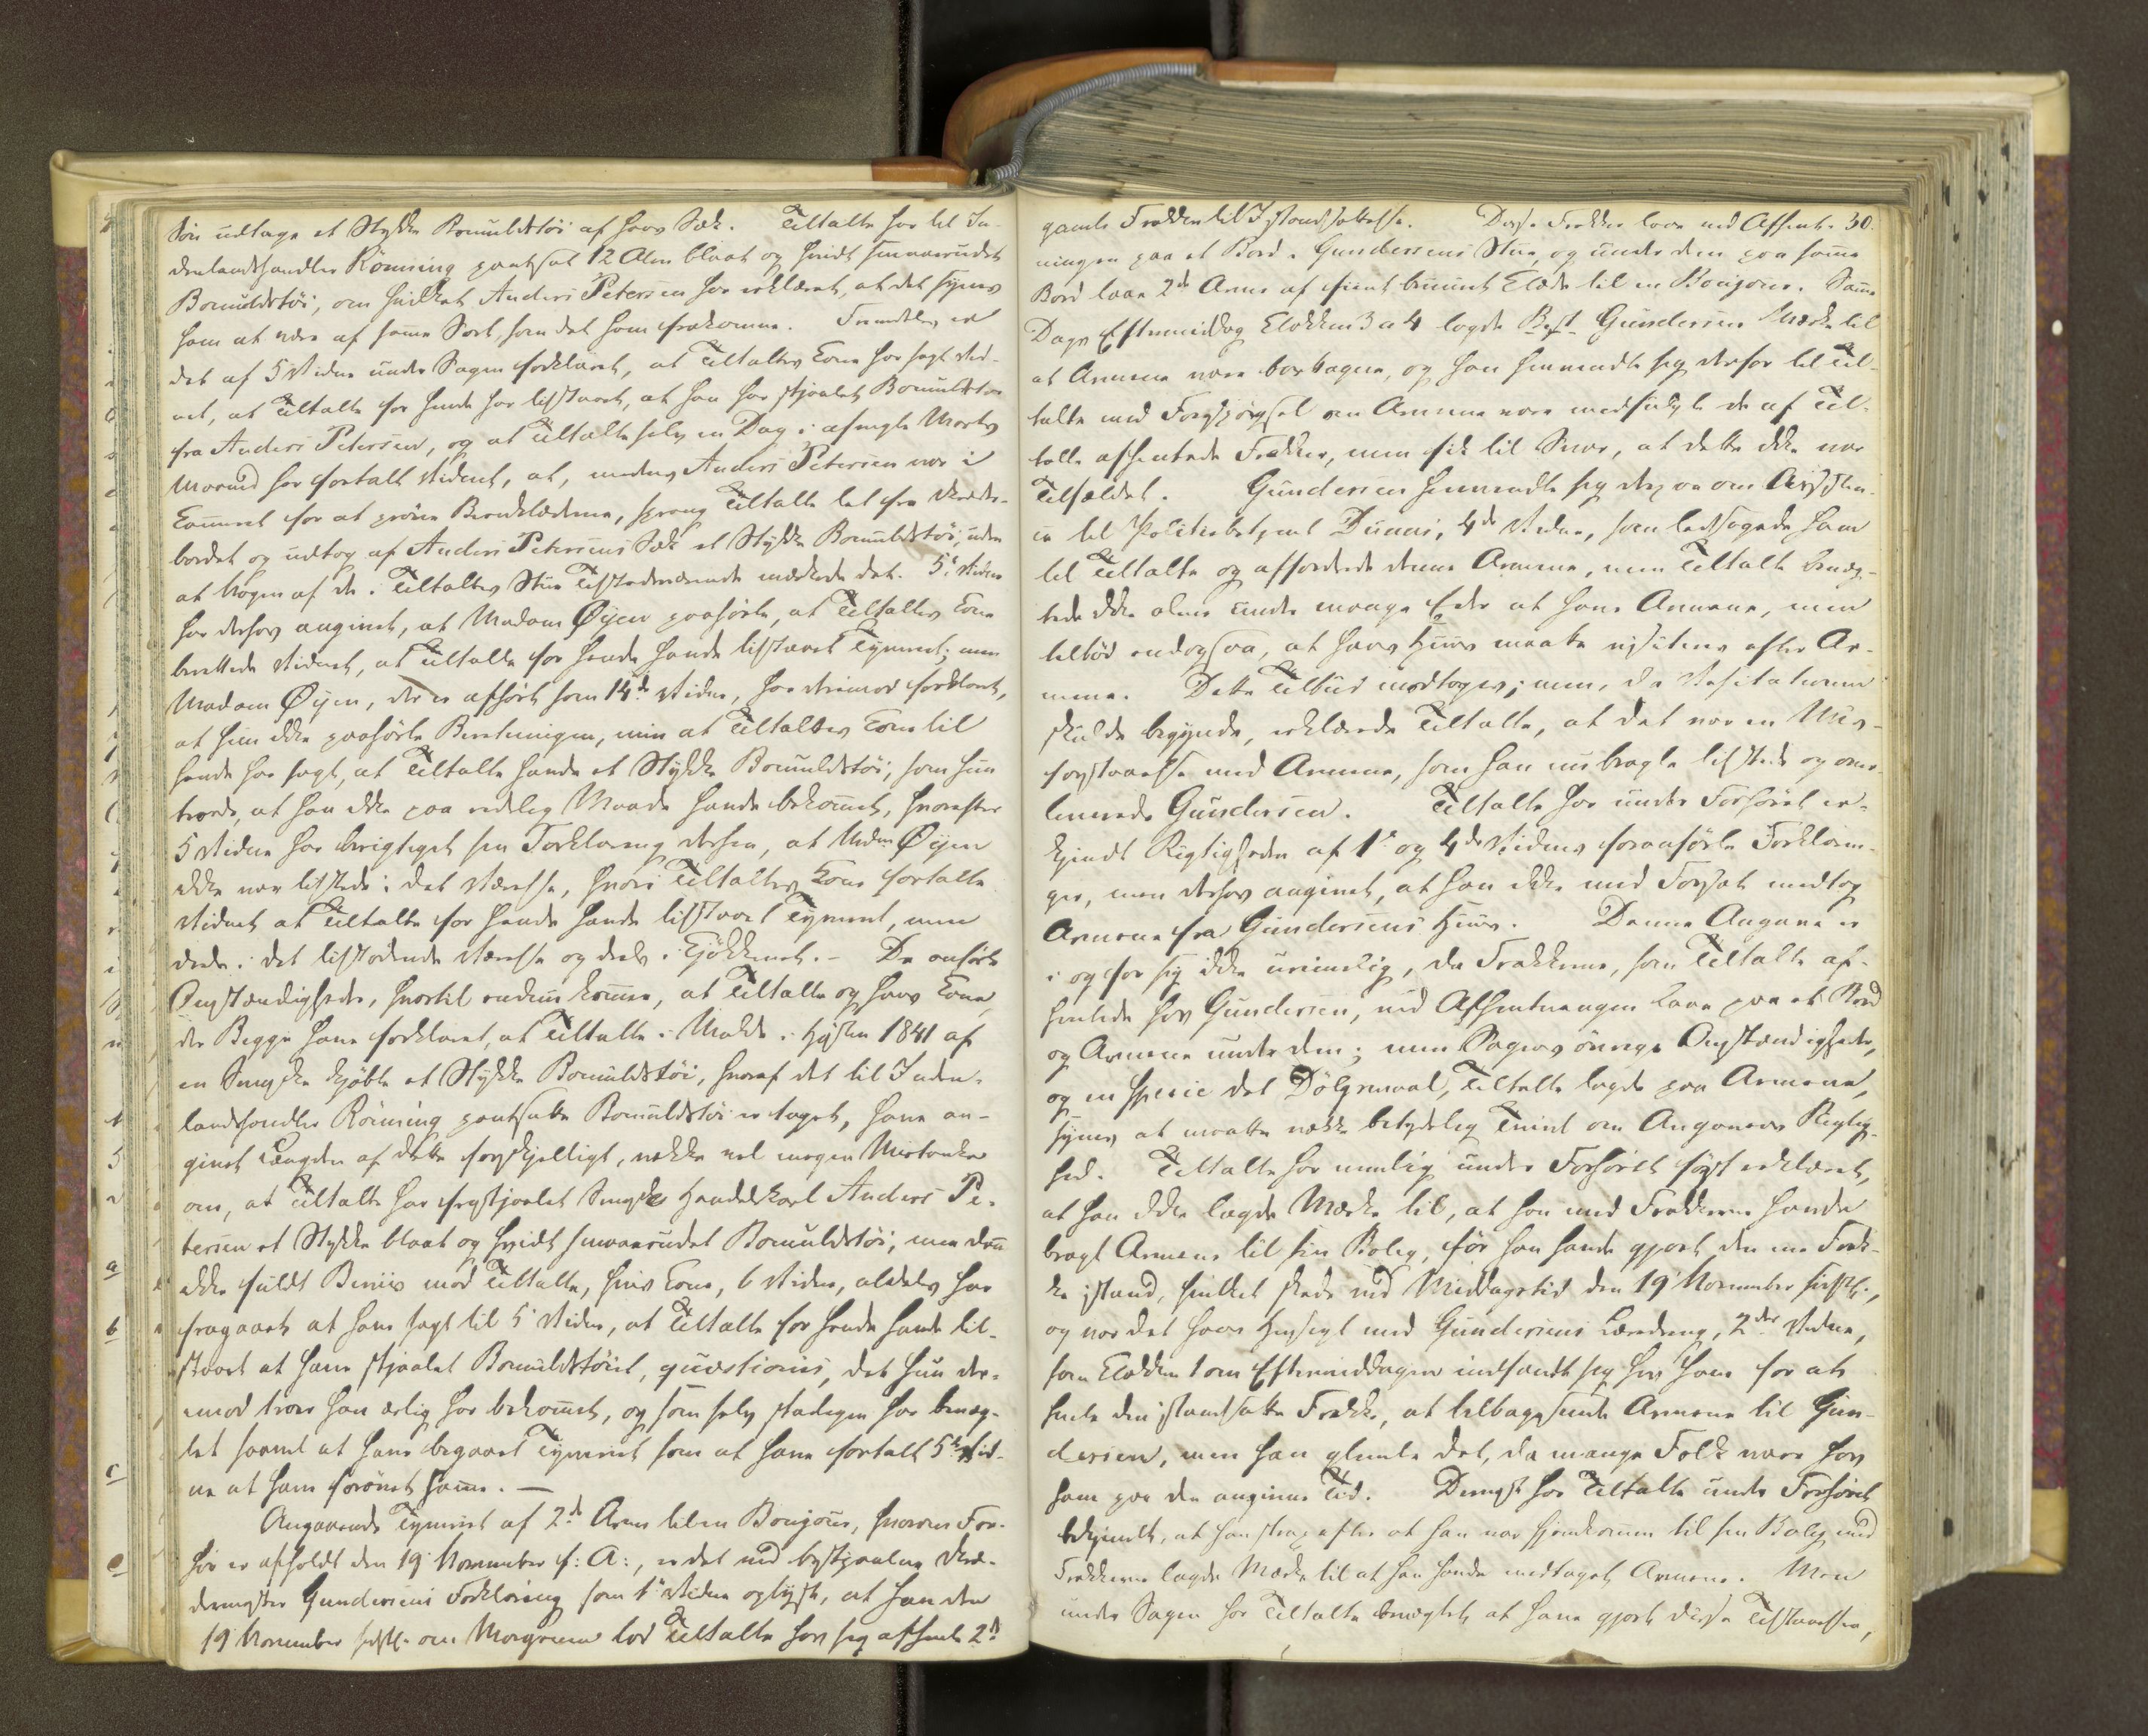 Sön udtage et Stykke Bomuldstöi af hans Sæk. Tiltalte har til In-
denlandshandler Rönning pantsat 12 Alen blaat og hvidt smaarudet
Bomuldstöi, om hvilket Anders Petersen har erklæret, at det synes
ham at være af samme Sort, som det ham frakomne. Fremdeles er
det af 5 Vidne under Sagen forklaret, at Tiltaltes Kone har sagt Vid-
net, at Tiltalte for hende har tilstaaet, at han har stjaalet Bomuldstöi
fra Anders Petersen, og at Tiltalte selv en Dag i afvigte Marts
Maaned har fortalt Vidnet, at, medens Anders Petersen var i
Kammeret for at pröve Benklæderne, sprang Tiltalte let fra Skrædder-
bordet og udtog af Anders Petersens Sæk et Stykke Bomuldstöi, uden
at Nogen af de i Tiltaltes Stue Tilstedeværende mærkede det. 5te Vidne
har derhos angivet, at Madam Øyen paahörte, at Tiltaltes Kone
berettede Vidnet, at Tiltalte for hende havde tilstaaet Tyveriet; men
Madam Øyen, der er afhört som 14de Vidne, har derimod forklaret,
at hun ikke paahörte Beretningen, men at Tiltaltes Kone til
hende har sagt, at Tiltalte havde et Stykke Bomuldstöi, som hun
troede, at han ikke paa redelig Maade havde bekommet, hvorefter
5 Vidne har berigtiget sin Forklaring derhen, at Madm Øyen
ikke var tilstede i det Værelse, hvori Tiltaltes Kone fortalte
Vidnet at Tiltalte for hende havde tilstaaet Tyveriet, men
deels i det tilstödende Værelse og deels i Kjökkenet. – De anförte
Omstændigheder, hvortil endnu kommer, at Tiltalte og hans Kone,
der Begge have forklaret, at Tiltalte i Molde i Hösten 1841 af
en Svenske kjöbte et Stykke Bomuldstöi, hvoraf det til Inden-
landshandler Rönning pantsatte Bomuldstöi er taget, have an-
givet Længden af dette forskjelligt, vække vel megen Mistanke
om, at Tiltalte har frastjaalet Svenske Handelskarl Anders Pe-
tersen et Stykke blaat og hvidt smaarudet Bomuldstöi, men dan
ikke fuldt Beviis mod Tiltalte, hvis Kone, 6 Vidne, aldeles har
fragaaet at have sagt til 5 Vidne, at Tiltalte for hende havde til-
staaet at have stjaalet Bomuldstöiet, quæstionis, det hun der-
imod troer han ærlig har bekommet, og som selv stadigen har benæg-
tet saavel at have begaaet Tyveriet som at have fortalt 5te Vid-
ne at have forövet samme. —
Angaaende Tyveriet af 2de Arme til en Bonjour, hvorom For-
hör er afholdt den 19 November f: A:, er det ved bestjaalne Skræ-
dermester Gundersens Forklaring som 1te Vidne oplyst, at han den
19 November sidstl. om Morgenen lod Tiltalte hos sig afhente 2de
gamle Frakker til Istandsættelse. Disse Frakker laae ved Afhent- 30.
ningen paa et Bord i Gundersens Stue, og under dem paa samme
Bord laae 2de Arme af fiint bruunt Klæde til en Bonjour. Samme
Dags Eftermiddag Klokken 3 a 4 lagde Best. Gundersen Mærke til
at Armene vare bortagne, og han henvendte sig derfor til Til-
talte med Forespörgsel om Armene vare medfulgte de af Til-
talte afhentede Frakker, men fik til Svar, at dette ikke var
Tilfældet. Gundersen henvendte sig derpaa om Assisten-
ce til Politiebetjent Duuns, 4de Vidne, som ledsagede ham
til Tiltalte og affordrede denne Armene, men Tiltalte benæg-
tede ikke alene under mange Eder at have Armene, men
tilböd endogsaa, at hans Huus maatte visiteres efter Ar-
mene. Dette Tilbud modtoges; men, da Visitationen
skulde begynde, erklærede Tiltalte, at det var en Mis-
forstaaelse med Armene, som han nu bragte tilstede og over-
leverede Gundersen. Tiltalte har under Forhöret er-
kjendt Rigtigheden af 1te og 4de Vidnes foranförte Forklarin-
ger, men derhos angivet, at han ikke med Forsæt medtog
Armene fra Gundersens Huus. Denne Angivne er
i og for sig ikke urimelig, da Frakkerne, som Tiltalte af-
hentede hos Gundersen, ved Afhentningen laae paa et Bord
og Armene under dem; men Sagens övrige Omstændigheder,
og in specie det Dölgsmaal, Tiltalte lagde paa Armene,
synes at maatte vække betydelig Tvivl om Angivnes Rigtig-
hed. Tiltalte har nemlig under Forhöret först erklæret,
at han ikke lagde Mærke til, at han med Frakkerne havde
bragt Armene til sin Bolig, för han havde gjort den ene Frak-
ke istand, hvilket skede ved Middagstid den 19 November sidstl.,
og var det hans Hensigt med Gundersens Læredreng, 2det Vidne,
som Klokken 1 om Eftermiddagen indfandt sig hos ham for at
hente den istandsatte Frakke, at tilbagesende Armene til Gun-
dersen, men han glemte det, da mange Folk vare hos
ham paa den angivne Tid. Dernæst har Tiltalte under Forhöret
bekjendt, at han strax efter at han var hjemkommen til sin Bolig med
Frakkerne lagde Mærke til at han havde medtaget Armene. Men
under Sagen har Tiltalte benægtet at have gjort disse Tilstaaelser,